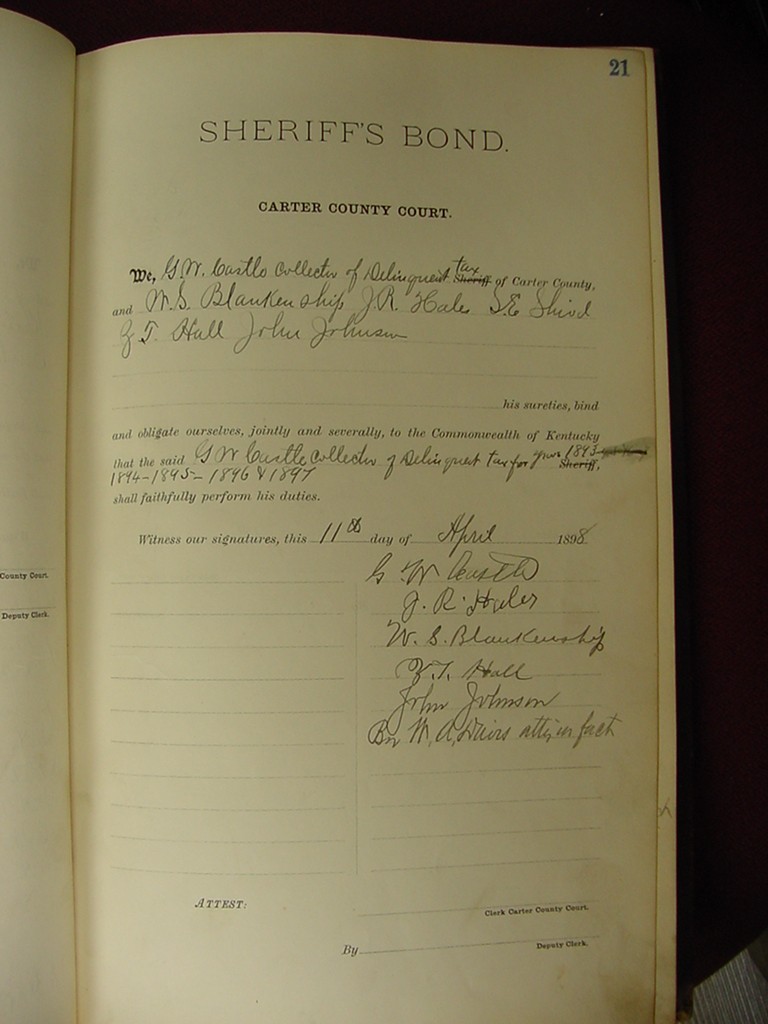 21
SHERIFF'S BOND.
CARTER COUNTY COURT.
We, G. W. Castle Collector of Delinquent tax Sheriff of Carter County,
and W. S. Blankenship J. R. Hales S. E.
Z T. Hall John Johnson
his sureties, bind
and obligate ourselves, jointly and severally, to the Commonwealth of Kentucky
that the said G W Castle collector of Delinquent tax for years 1893
1894-1895- 1896 & 1897 Sheriff,
shall faithfully perform his duties.
Witness our signatures, this 11th day of April 1898
G W Castle
J. R. Hales
W. S. Blankenship
Z. T. Hall
John Johnson
By W. A. Davis atty in fact
ATTEST:
Clerk Carter County Court.
By Deputy Clerk.
County Court.
Deputy Clerk.